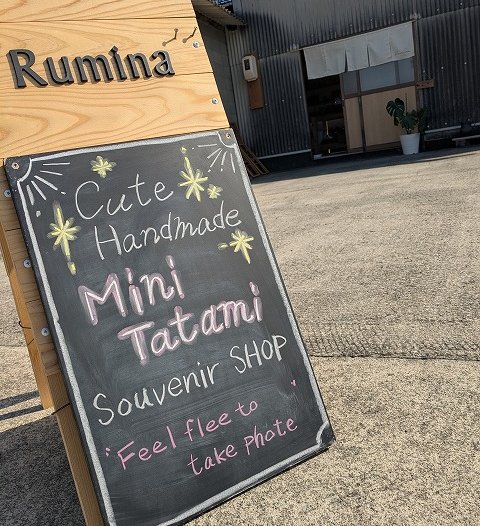 Rumina
Cute
Handmade
Mini
Tatami
Souvenir SHOP
"Feel flee to
take phote"